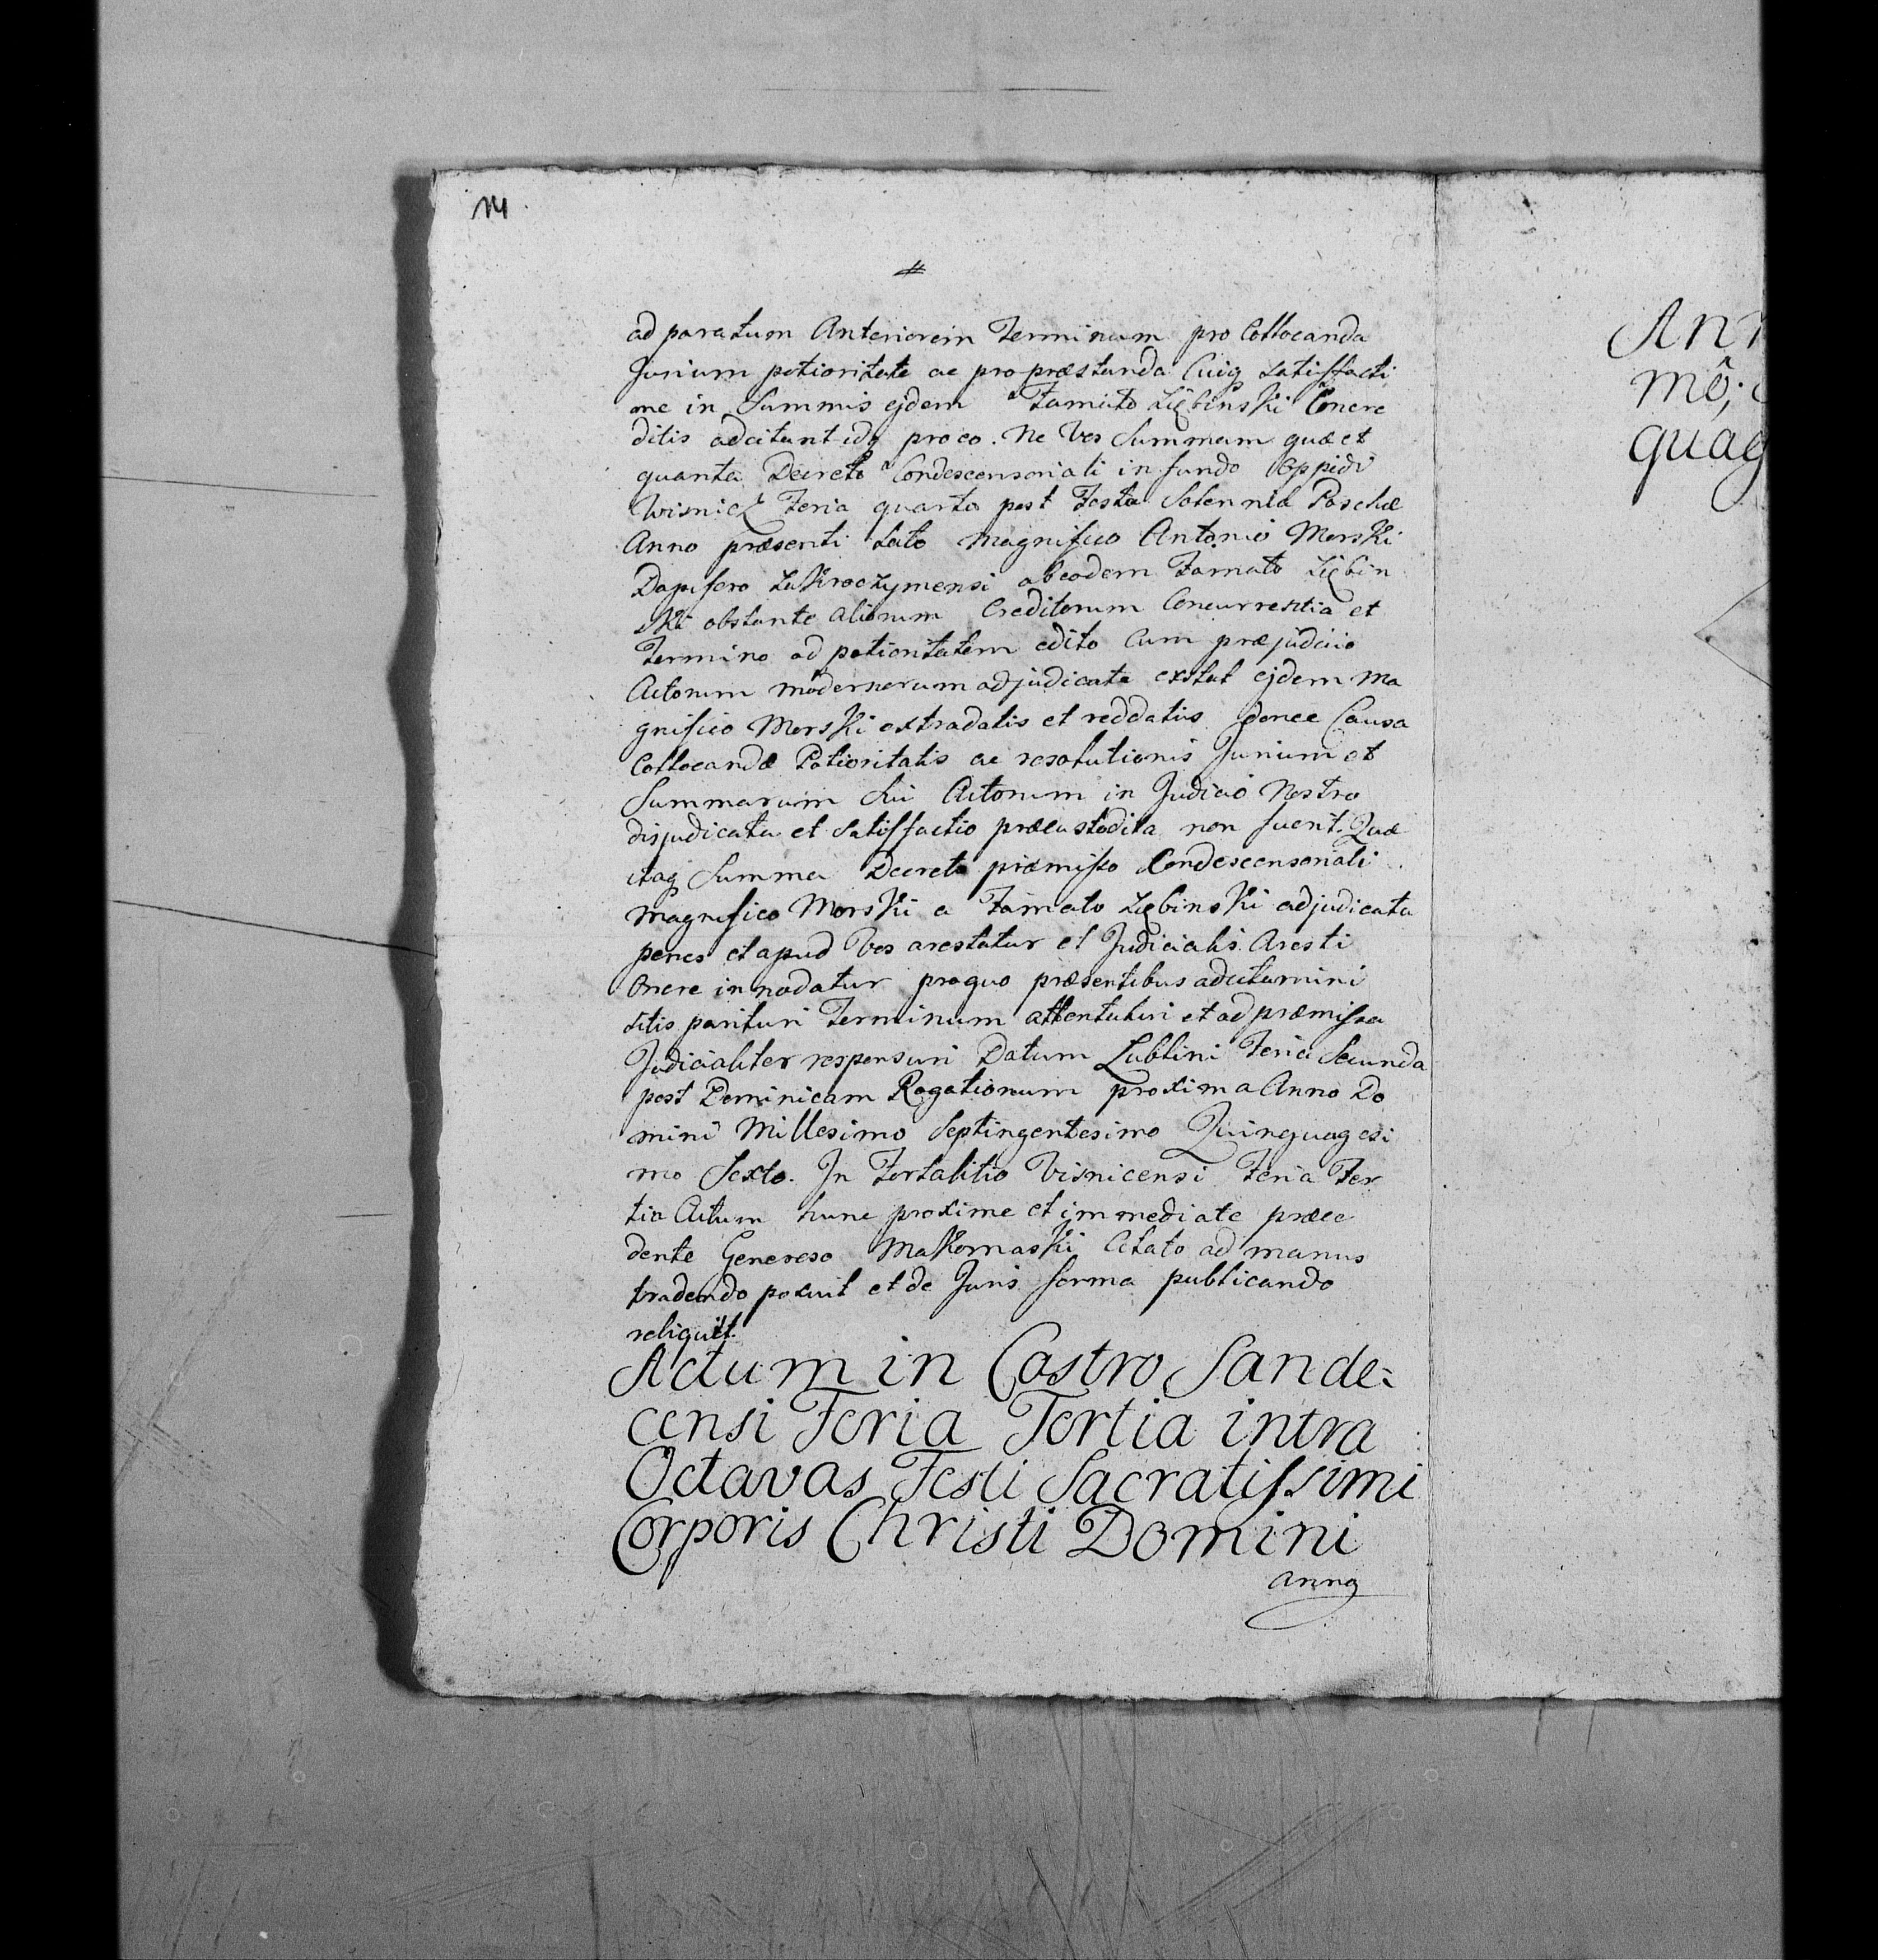 14
#
ad paratum Anteriorem Terminum pro Collocanda
Jurium potioritate ac pro præstanda Cuiq Satisfacti
one in Summis ejdem Famato Ziębinski Concre
ditis adcitant idq pro eo. Ne Vos Summam quæ et
quanta Decreto Condescensoriali in fundo Oppidi
Wisnicz Feria quarta post Festa Solennia Paschæ
Anno præsenti Lato Magnifico Antonio Morski
Dapifero Zakroczymensi ab eodem Famato Ziębin
ski obstante aliorum Creditorum Concurrentia et
Termino ad potioritatem edito Cum præjudicio
Actorum modernorum adjudicata extat ejdem Ma
gnifico Morski extradatis et reddatis donec Causa
Collocandæ Potioritatis ac resolutionis Jurium et
Summarum Sui Actorum in Judicio Nostro
disjudicata et Satisfactio præcustodita non fuerit. Quæ
itaq Summa Decreto præmisso Condescensoriali
Magnifico Morski a Famato Ziębinski adjudicata
penes et apud Vos arestatur et Judicialis Aresti
Onere innodatur pro quo præsentibus adcitamini
sitis parituri Terminum attentaturi et ad præmissa
Judicialiter responsuri Datum Lublini Feria Secunda
post Dominicam Rogationum proxima Anno Do
mini Millesimo Septingentesimo Quinquagesi
mo Sexto. In Fortalitio Visnicensi Feria Ter
tia Actum hunc proxime et immediate præce
dente Generoso Makomaski Citato ad manus
tradendo posuit et de Juris forma publicando
reliquit.
Actum in Castro Sande=
censi Feria Tertia intra
Octavas Festi Sacratissimi
Corporis Christi Domini
Anno
mô;